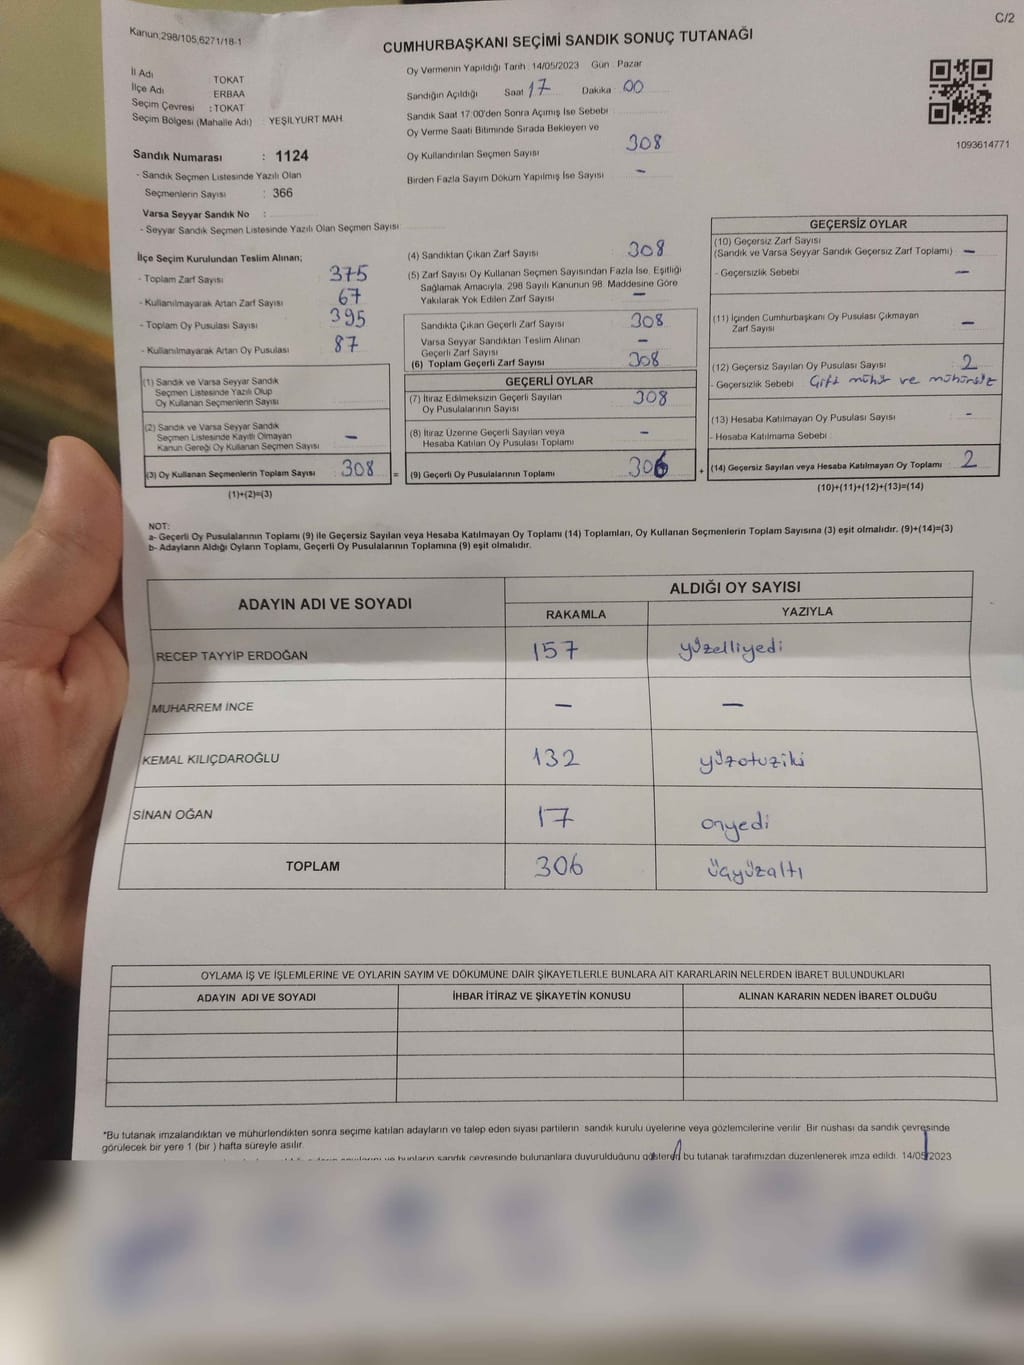 Kanun;298/105,6271/18-1
C/2
CUMHURBAŞKANI SEÇİMİ SANDIK SONUÇ TUTANAĞI
İl Adı TOKAT
İlçe Adı ERBAA
Seçim Çevresi : TOKAT
Seçim Bölgesi (Mahalle Adı) YEŞİLYURT MAH.
Sandık Numarası : 1124
- Sandık Seçmen Listesinde Yazılı Olan
Seçmenlerin Sayısı : 366
Varsa Seyyar Sandık No :
- Seyyar Sandık Seçmen Listesinde Yazılı Olan Seçmen Sayısı
Oy Vermenin Yapıldığı Tarih : 14/05/2023 Gün : Pazar
Sandığın Açıldığı Saat 17 Dakika 00
Sandık Saat 17:00'den Sonra Açımış İse Sebebi
Oy Verme Saati Bitiminde Sırada Bekleyen ve
Oy Kullandırılan Seçmen Sayısı 308
Birden Fazla Sayım Döküm Yapılmış İse Sayısı –
1093614771
İlçe Seçim Kurulundan Teslim Alınan;
- Toplam Zarf Sayısı 375
- Kullanılmayarak Artan Zarf Sayısı 67
- Toplam Oy Pusulası Sayısı 395
- Kullanılmayarak Artan Oy Pusulası 87
(1) Sandık ve Varsa Seyyar Sandık
Seçmen Listesinde Yazılı Olup
Oy Kullanan Seçmenlerin Sayısı
(2) Sandık ve Varsa Seyyar Sandık
Seçmen Listesinde Kayıtlı Olmayan
Kanun Gereği Oy Kullanan Seçmen Sayısı –
(3) Oy Kullanan Seçmenlerin Toplam Sayısı 308 =
(1)+(2)=(3)
(4) Sandıktan Çıkan Zarf Sayısı 308
(5) Zarf Sayısı Oy Kullanan Seçmen Sayısından Fazla İse, Eşitliği
Sağlamak Amacıyla, 298 Sayılı Kanunun 98. Maddesine Göre
Yakılarak Yok Edilen Zarf Sayısı –
Sandıkta Çıkan Geçerli Zarf Sayısı 308
Varsa Seyyar Sandıktan Teslim Alınan
Geçerli Zarf Sayısı –
(6) Toplam Geçerli Zarf Sayısı 308
GEÇERLİ OYLAR
(7) İtiraz Edilmeksizin Geçerli Sayılan
Oy Pusulalarının Sayısı 308
(8) İtiraz Üzerine Geçerli Sayılan veya
Hesaba Katılan Oy Pusulası Toplamı –
(9) Geçerli Oy Pusulalarının Toplamı 306 +
GEÇERSİZ OYLAR
(10) Geçersiz Zarf Sayısı
(Sandık ve Varsa Seyyar Sandık Geçersiz Zarf Toplamı) –
- Geçersizlik Sebebi –
(11) İçinden Cumhurbaşkanı Oy Pusulası Çıkmayan
Zarf Sayısı –
(12) Geçersiz Sayılan Oy Pusulası Sayısı 2
- Geçersizlik Sebebi Çift mühür ve mühürsüz
(13) Hesaba Katılmayan Oy Pusulası Sayısı -
- Hesaba Katılmama Sebebi
(14) Geçersiz Sayılan veya Hesaba Katılmayan Oy Toplamı 2
(10)+(11)+(12)+(13)=(14)
NOT:
a- Geçerli Oy Pusulalarının Toplamı (9) ile Geçersiz Sayılan veya Hesaba Katılmayan Oy Toplamı (14) Toplamları, Oy Kullanan Seçmenlerin Toplam Sayısına (3) eşit olmalıdır. (9)+(14)=(3)
b- Adayların Aldığı Oyların Toplamı, Geçerli Oy Pusulalarının Toplamına (9) eşit olmalıdır.
ADAYIN ADI VE SOYADI
ALDIĞI OY SAYISI
RAKAMLA YAZIYLA
RECEP TAYYİP ERDOĞAN 157 yüzelliyedi
MUHARREM İNCE – –
KEMAL KILIÇDAROĞLU 132 yüzotuziki
SİNAN OĞAN 17 onyedi
TOPLAM 306 üçyüzaltı
OYLAMA İŞ VE İŞLEMLERİNE VE OYLARIN SAYIM VE DÖKÜMÜNE DAİR ŞİKAYETLERLE BUNLARA AİT KARARLARIN NELERDEN İBARET BULUNDUKLARI
ADAYIN ADI VE SOYADI İHBAR İTİRAZ VE ŞİKAYETİN KONUSU ALINAN KARARIN NEDEN İBARET OLDUĞU
*Bu tutanak imzalandıktan ve mühürlendikten sonra seçime katılan adayların ve talep eden siyasi partilerin sandık kurulu üyelerine veya gözlemcilerine verilir. Bir nüshası da sandık çevresinde
görülecek bir yere 1 (bir ) hafta süreyle asılır.
ve bunların sandık çevresinde bulunanlara duyurulduğunu gösteren bu tutanak tarafımızdan düzenlenerek imza edildi. 14/05/2023